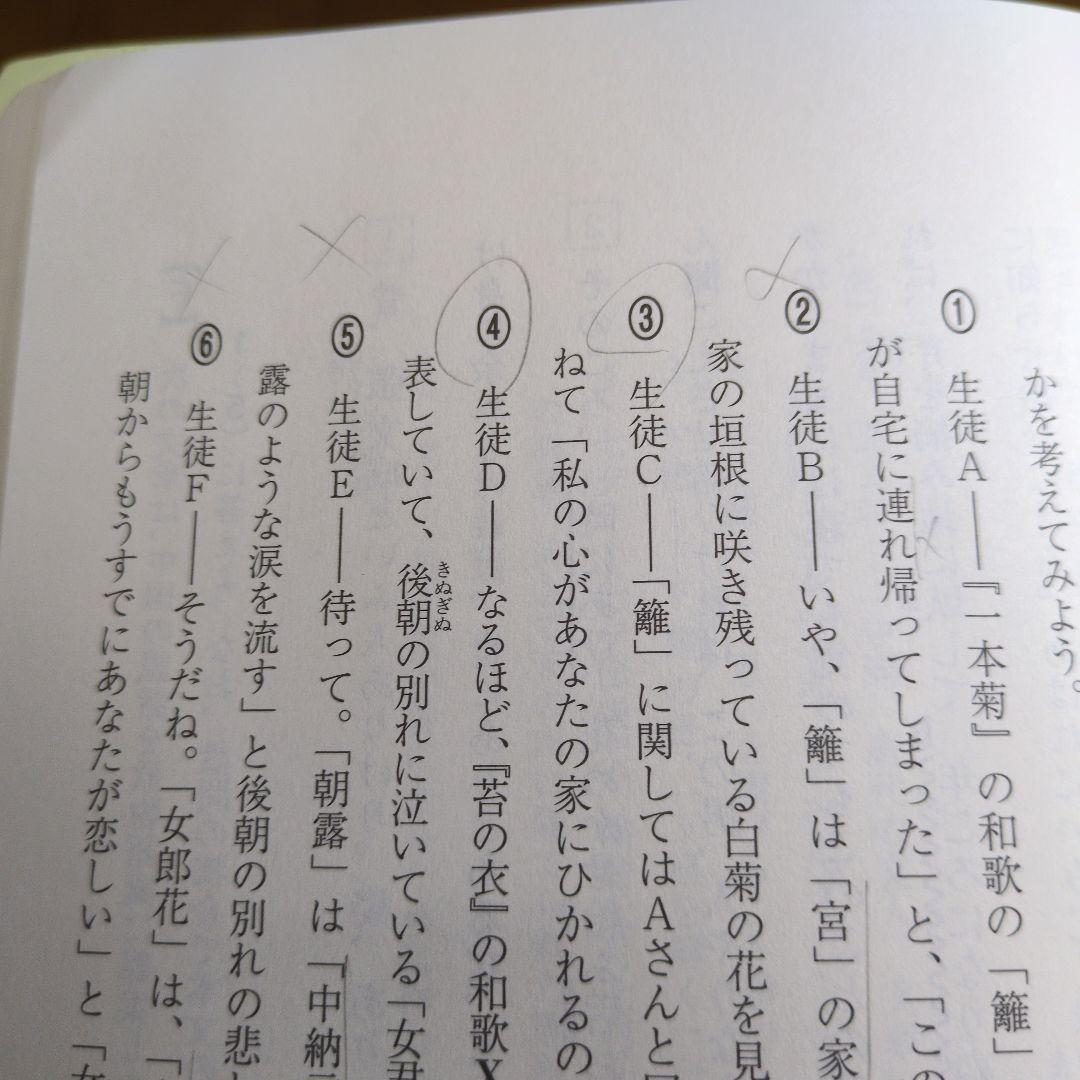 かを考えてみよう。
① 生徒A――『一本菊』の和歌の「籬」
が自宅に連れ帰ってしまった」と、「この
② 生徒B――いや、「籬」は「宮」の家
家の垣根に咲き残っている白菊の花を見
③ 生徒C――「籬」に関してはAさんと
ねて「私の心があなたの家にひかれるの
④ 生徒D――なるほど、『苔の衣』の和歌X
表していて、後朝の別れに泣いている「女君
きぬぎぬ
⑤ 生徒E――待って。「朝露」は「中納
露のような涙を流す」と後朝の別れの悲
⑥ 生徒F――そうだね。「女郎花」は、「
朝からもうすでにあなたが恋しい」と「女